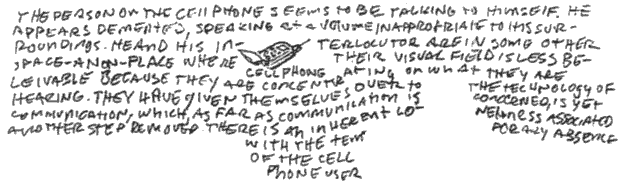 THE PERSON ON THE CELL PHONE SEEMS TO BE TALKING TO HIMSELF. HE
APPEARS DEMENTED, SPEAKING AT A VOLUME INAPPROPRIATE TO HIS SUR-
ROUNDINGS. HE AND HIS IN- TERLOCUTOR ARE IN SOME OTHER
SPACE-A NON-PLACE WHERE THEIR VISUAL FIELD IS LESS BE-
CELL PHONE
LIEVABLE BECAUSE THEY ARE CONCENTR ATING ON WHAT THEY ARE
HEARING. THEY HAVE GIVEN THEMSELVES OVER TO THE TECHNOLOGY OF
COMMUNICATION, WHICH, AS FAR AS COMMUNICATION IS CONCERNED, IS YET
ANOTHER STEP REMOVED. THERE IS AN INHERENT LO- NELINESS ASSOCIATED
WITH THE TEM PORARY ABSENCE
OF THE CELL
PHONE USER